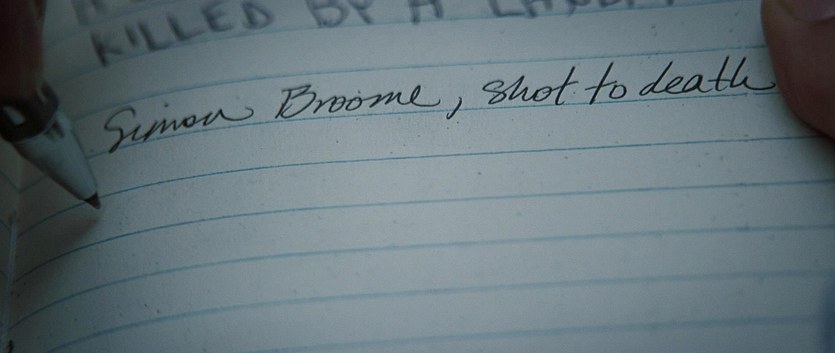 KILLED BY A
Simon Broome, shot to death